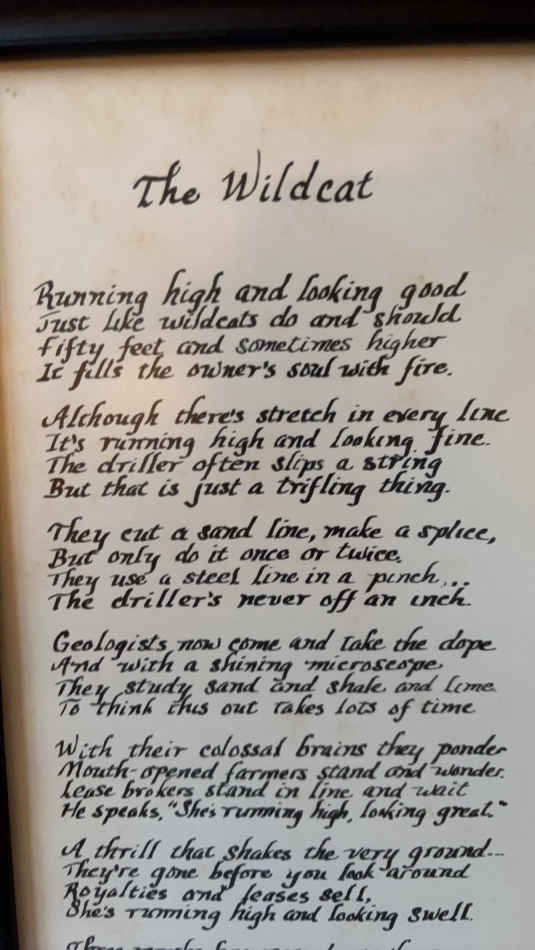 The Wildcat
Running high and looking good
Just like wildcats do and should
Fifty feet and sometimes higher
It fills the owner's soul with fire.
Although there's stretch in every line
It's running high and looking fine.
The driller often slips a string
But that is just a trifling thing.
They cut a sand line, make a splice,
But only do it once or twice.
They use a steel line in a pinch...
The driller's never off an inch.
Geologists now come and take the dope
And with a shining microscope
They study sand and shale and lime
To think this out takes lots of time
With their colossal brains they ponder
Mouth-opened farmers stand and wonder.
Lease brokers stand in line and wait
He speaks, "She's running high, looking great."
A thrill that shakes the very ground...
They're gone before you look around
Royalties and leases sell,
She's running high and looking swell.